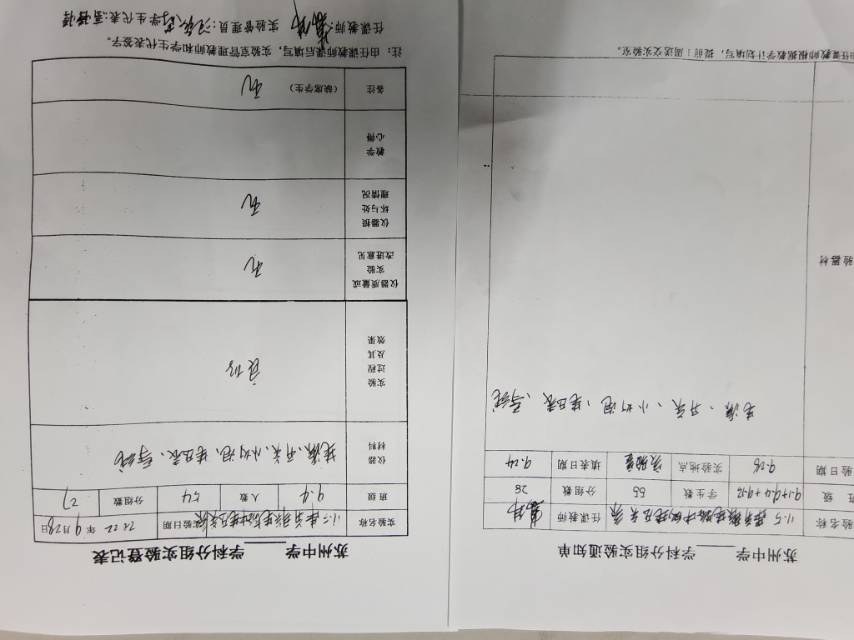 苏州中学____学科分组实验通知单
验名称 11.5 串并联电路中的电压关系 任课教师
级 9.1+9.4+9.12 学生数 55 分组数 28
验日期 9.28 实验地点 实验室 填表日期 9.24
验器材
电源、开关、小灯泡、电压表、导线
任课教师根据教学计划填写，提前1周送交实验室。
苏州中学____学科分组实验登记表
实验名称 11.5 实验日期 2022年9月28日
班级 9.4 人数 54 分组数 27
仪器材料 电源、开关、小灯泡、电压表、导线
实验过程及其效果 良好
仪器质量或实验改进意见 无
仪器损坏与处理情况 无
教学心得
备注 (缺席学生) 无
注：由任课教师课后填写，实验室管理教师和学生代表签字。
任课教师: 实验管理员: 学生代表: